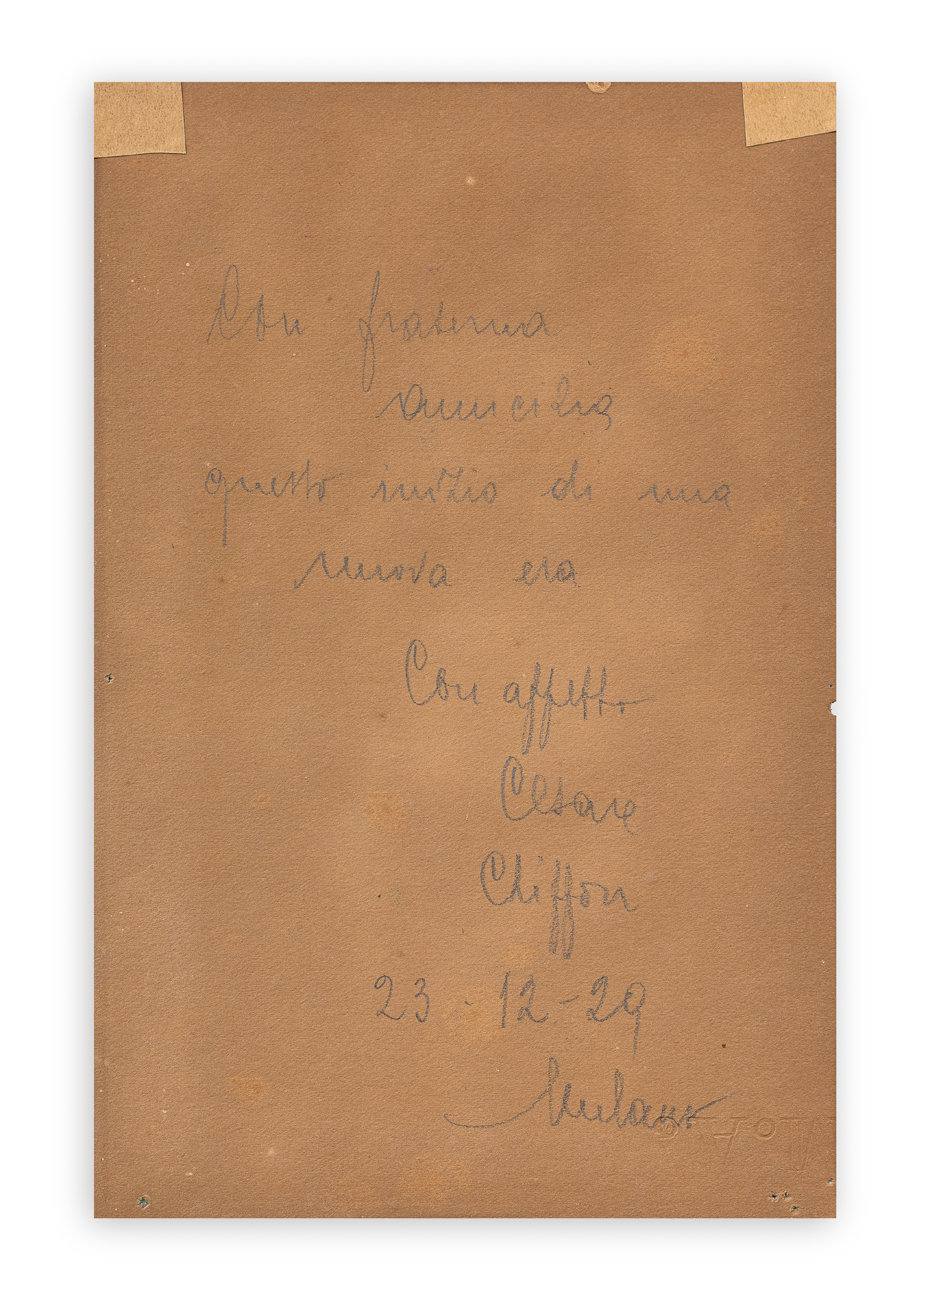 Con fraterna
amicizia
questo inizio di una
nuova era
Con affetto
Cesare
Chiffon
23 - 12 - 29
Milano